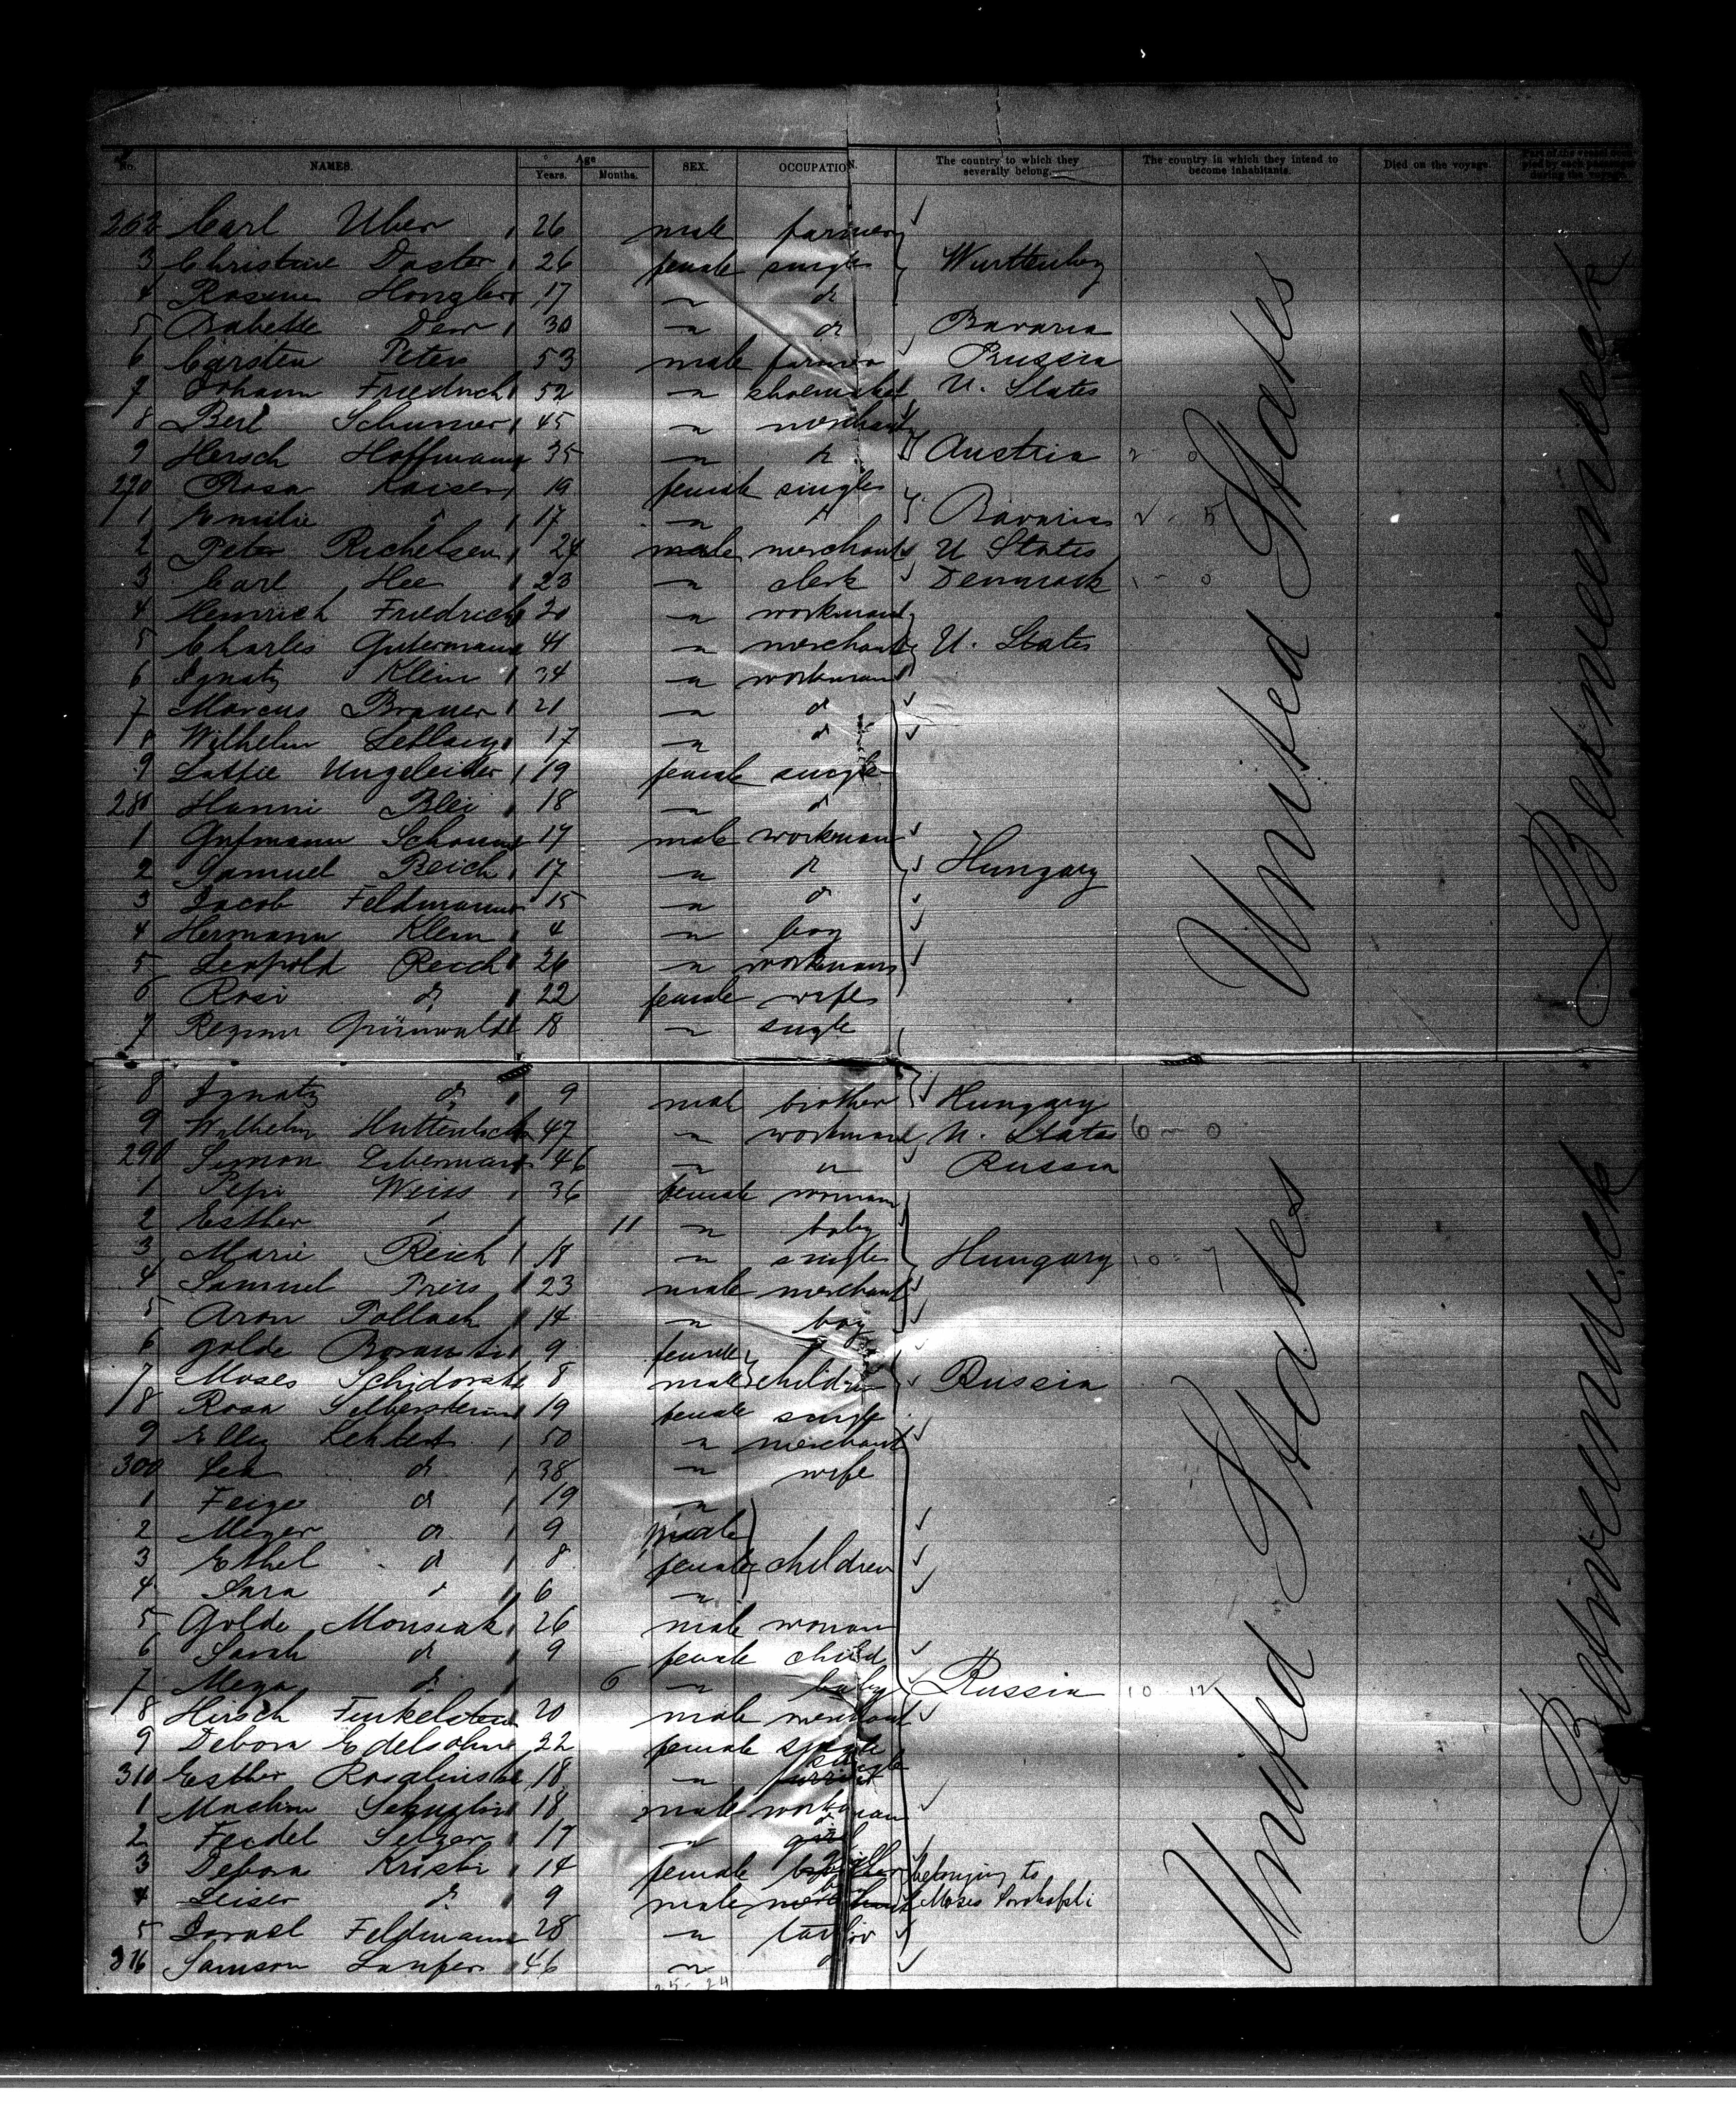 No. NAMES. Age Years. Months. SEX. OCCUPATION. The country to which they severally belong. The country in which they intend to become inhabitants. Died on the voyage. Part of the vessel occupied by each passenger during the voyage.
262 Carl Uber 26 male farmer
3 Christine Daster 26 female single Wurttenberg
4 Rosine 17 " d
5 Babette Derr 30 " d Bavaria
6 Carsten Peters 53 male farmer Russia
7 Johann Friedrich 52 " shoemaker U. States
8 Berl 45 " merchant
9 Hersch Hoffmann 35 " d Austria 2 - 0
270 Rosa Kaiser 19 female single
1 Emilie d 17 " d Bavaria 5
2 Peter Richelsen 24 male merchant U States
3 Carl Hee 23 " clerk Denmark 1 - 0
4 Heinrich Friedrich 20 " workman
5 Charles Gutermann 41 " merchant U. States
6 Ignatz Klein 34 " workman
7 Marcus Brauer 21 " d
8 Wilhelm 17 " d
9 Lottie Ungeleider 19 female single
280 Hanni Blei 18 " d
1 17 male workman
2 Samuel Reich 17 " d Hungary
3 Jacob Feldmann 15 " d
4 Hermann Klein 4 " boy
5 Leopold Reich 26 " workman
6 Rosi d 22 female wife
7 Regina Grünwald 18 " single
8 Ignatz d 9 male brother Hungary
9 Wilhelm 47 " workman U. States 6 - 0
290 Simon Liberman 46 " " Russia
1 Pepi Weiss 36 female woman
2 Esther d 11 " baby
3 Marie Reich 18 " single Hungary 10 - 7
4 Samuel Preis 23 male merchant
5 Aron Pollach 14 " boy
6 Golde 9 female
7 Moses 8 male children Russia
8 Rosa Silberstein 19 female single
9 50 " merchant
300 Lea d 38 " wife
1 Feige d 19 "
2 Meyer d 9 male
3 Ethel d 8 female children
4 Sara d 6 "
5 Golde Monsiak 26 male woman
6 Sarah d 9 female child
7 d 6 " baby Russia 10 - 12
8 Hirsch Finkelstein 20 male merchant
9 Debora Edelsohn 22 female single
310 Esther 18 " single
1 18 male workman
2 Feidel Selzer 17 " d
3 Debora 14 female girl belonging to
4 Leiser d 9 male boy Moses
5 Israel Feldmann 28 " tailor
316 Samson Laufer 46 " d
25 - 24
United States
United States
Betweendeck
Betweendeck